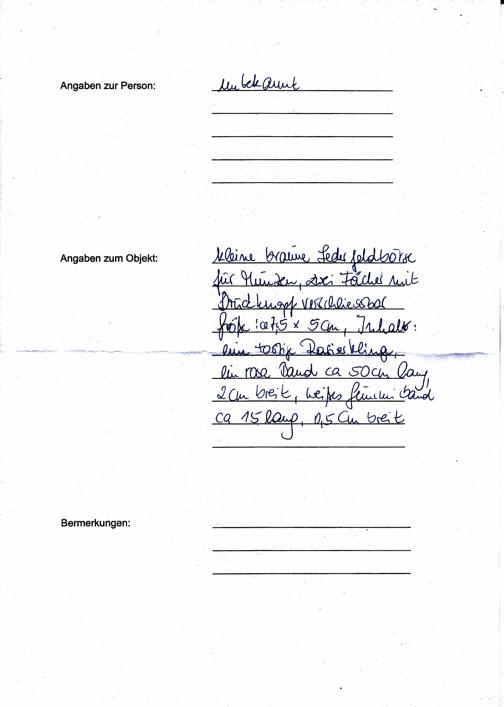 Angaben zur Person: unbekannt
Angaben zum Objekt: kleine braune Ledergeldbörse
für Münzen, zwei Fächer mit
Druckknopf verschliessbar
Größe: ca 7,5 x 5cm, Inhalt:
eine rostige Rasierklinge,
ein rosa Band ca 50cm lang,
2cm breit, weißes Gummiband
ca 15 lang, 0,5 cm breit
Bermerkungen: